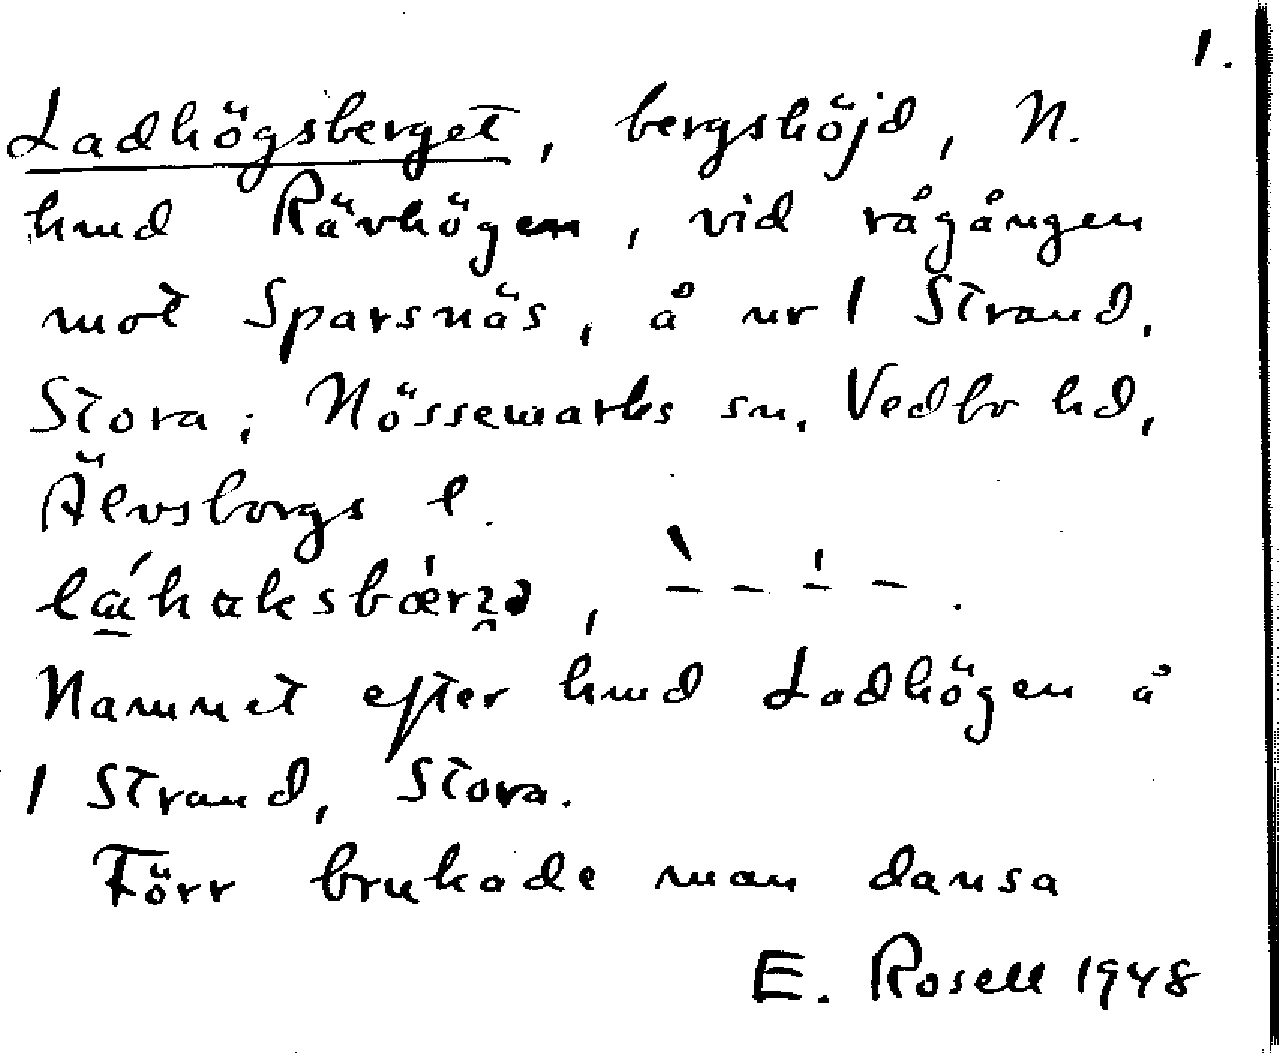 1.
Ladhögsberget, bergshöjd, N.
hmd Rävhögen, vid rågången
mot Sparsnäs, å nr 1 Strand,
Stora; Nössemarks sn, Vedbo hd,
Älvsborgs l.
Namnet efter hmd Ladhögen å
1 Strand, Stora.
Förr brukade man dansa
E. Rosell 1948